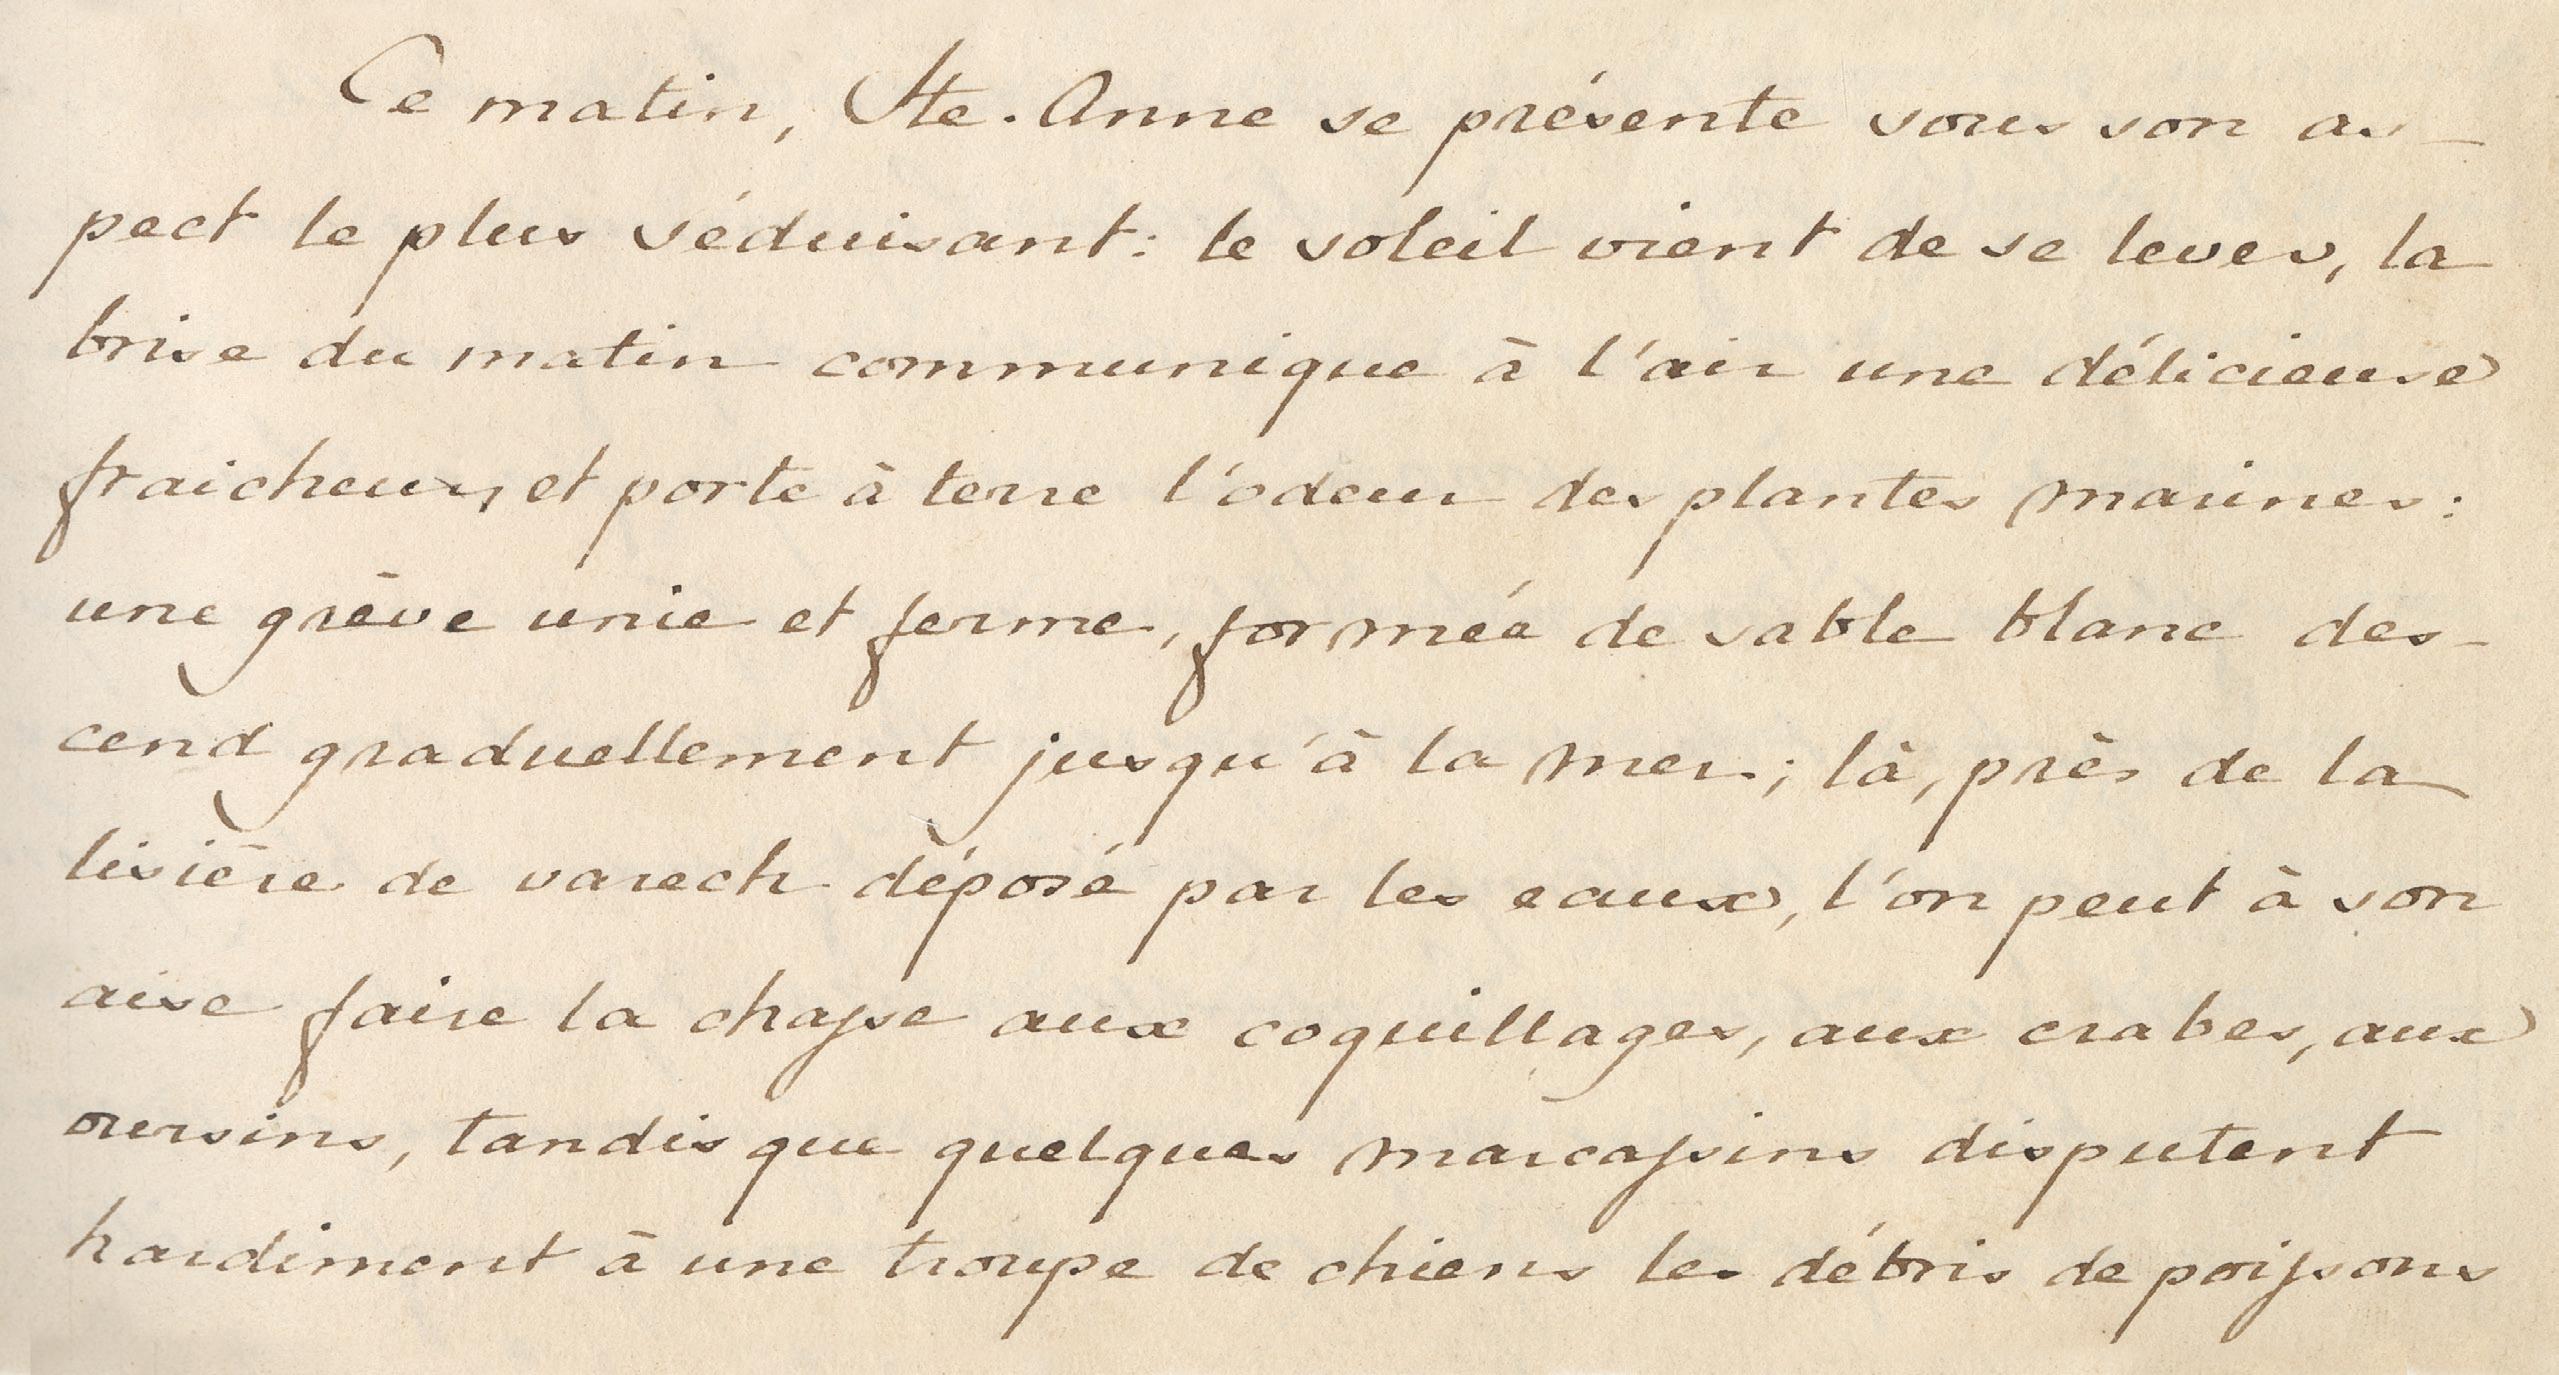 Ce matin, Ste. Anne se présente sous son as-
pect le plus séduisant: le soleil vient de se lever, la
brise du matin communique à l'air une délicieuse
fraicheur, et porte à terre l'odeur des plantes marines:
une grève unie et ferme, formée de sable blanc des-
cend graduellement jusqu'à la mer; là, près de la
lisière de varech déposé par les eaux, l'on peut à son
aise faire la chasse aux coquillages, aux crabes, aux
oursins, tandis que quelques marcassins disputent
hardiment à une troupe de chiens les débris de poissons